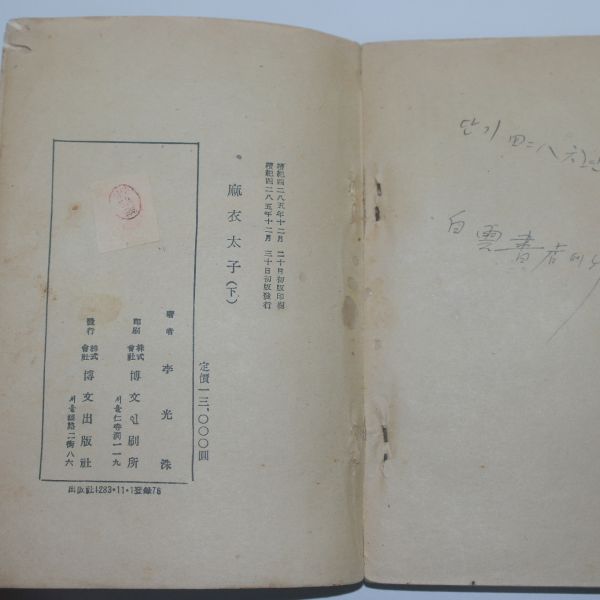 檀紀四二八五年十二月 二十日初版印刷
檀紀四二八五年十二月 三十日初版發行
麻衣太子 (下)
定價一三,〇〇〇圓
著者 李光洙
印刷 株式會社 博文인刷所
서울仁寺洞一一九
發行 株式會社 博文出版社
서울鍾路二街八六
出版社4283•11•1登錄76
단기 四二八
白雲書店에서